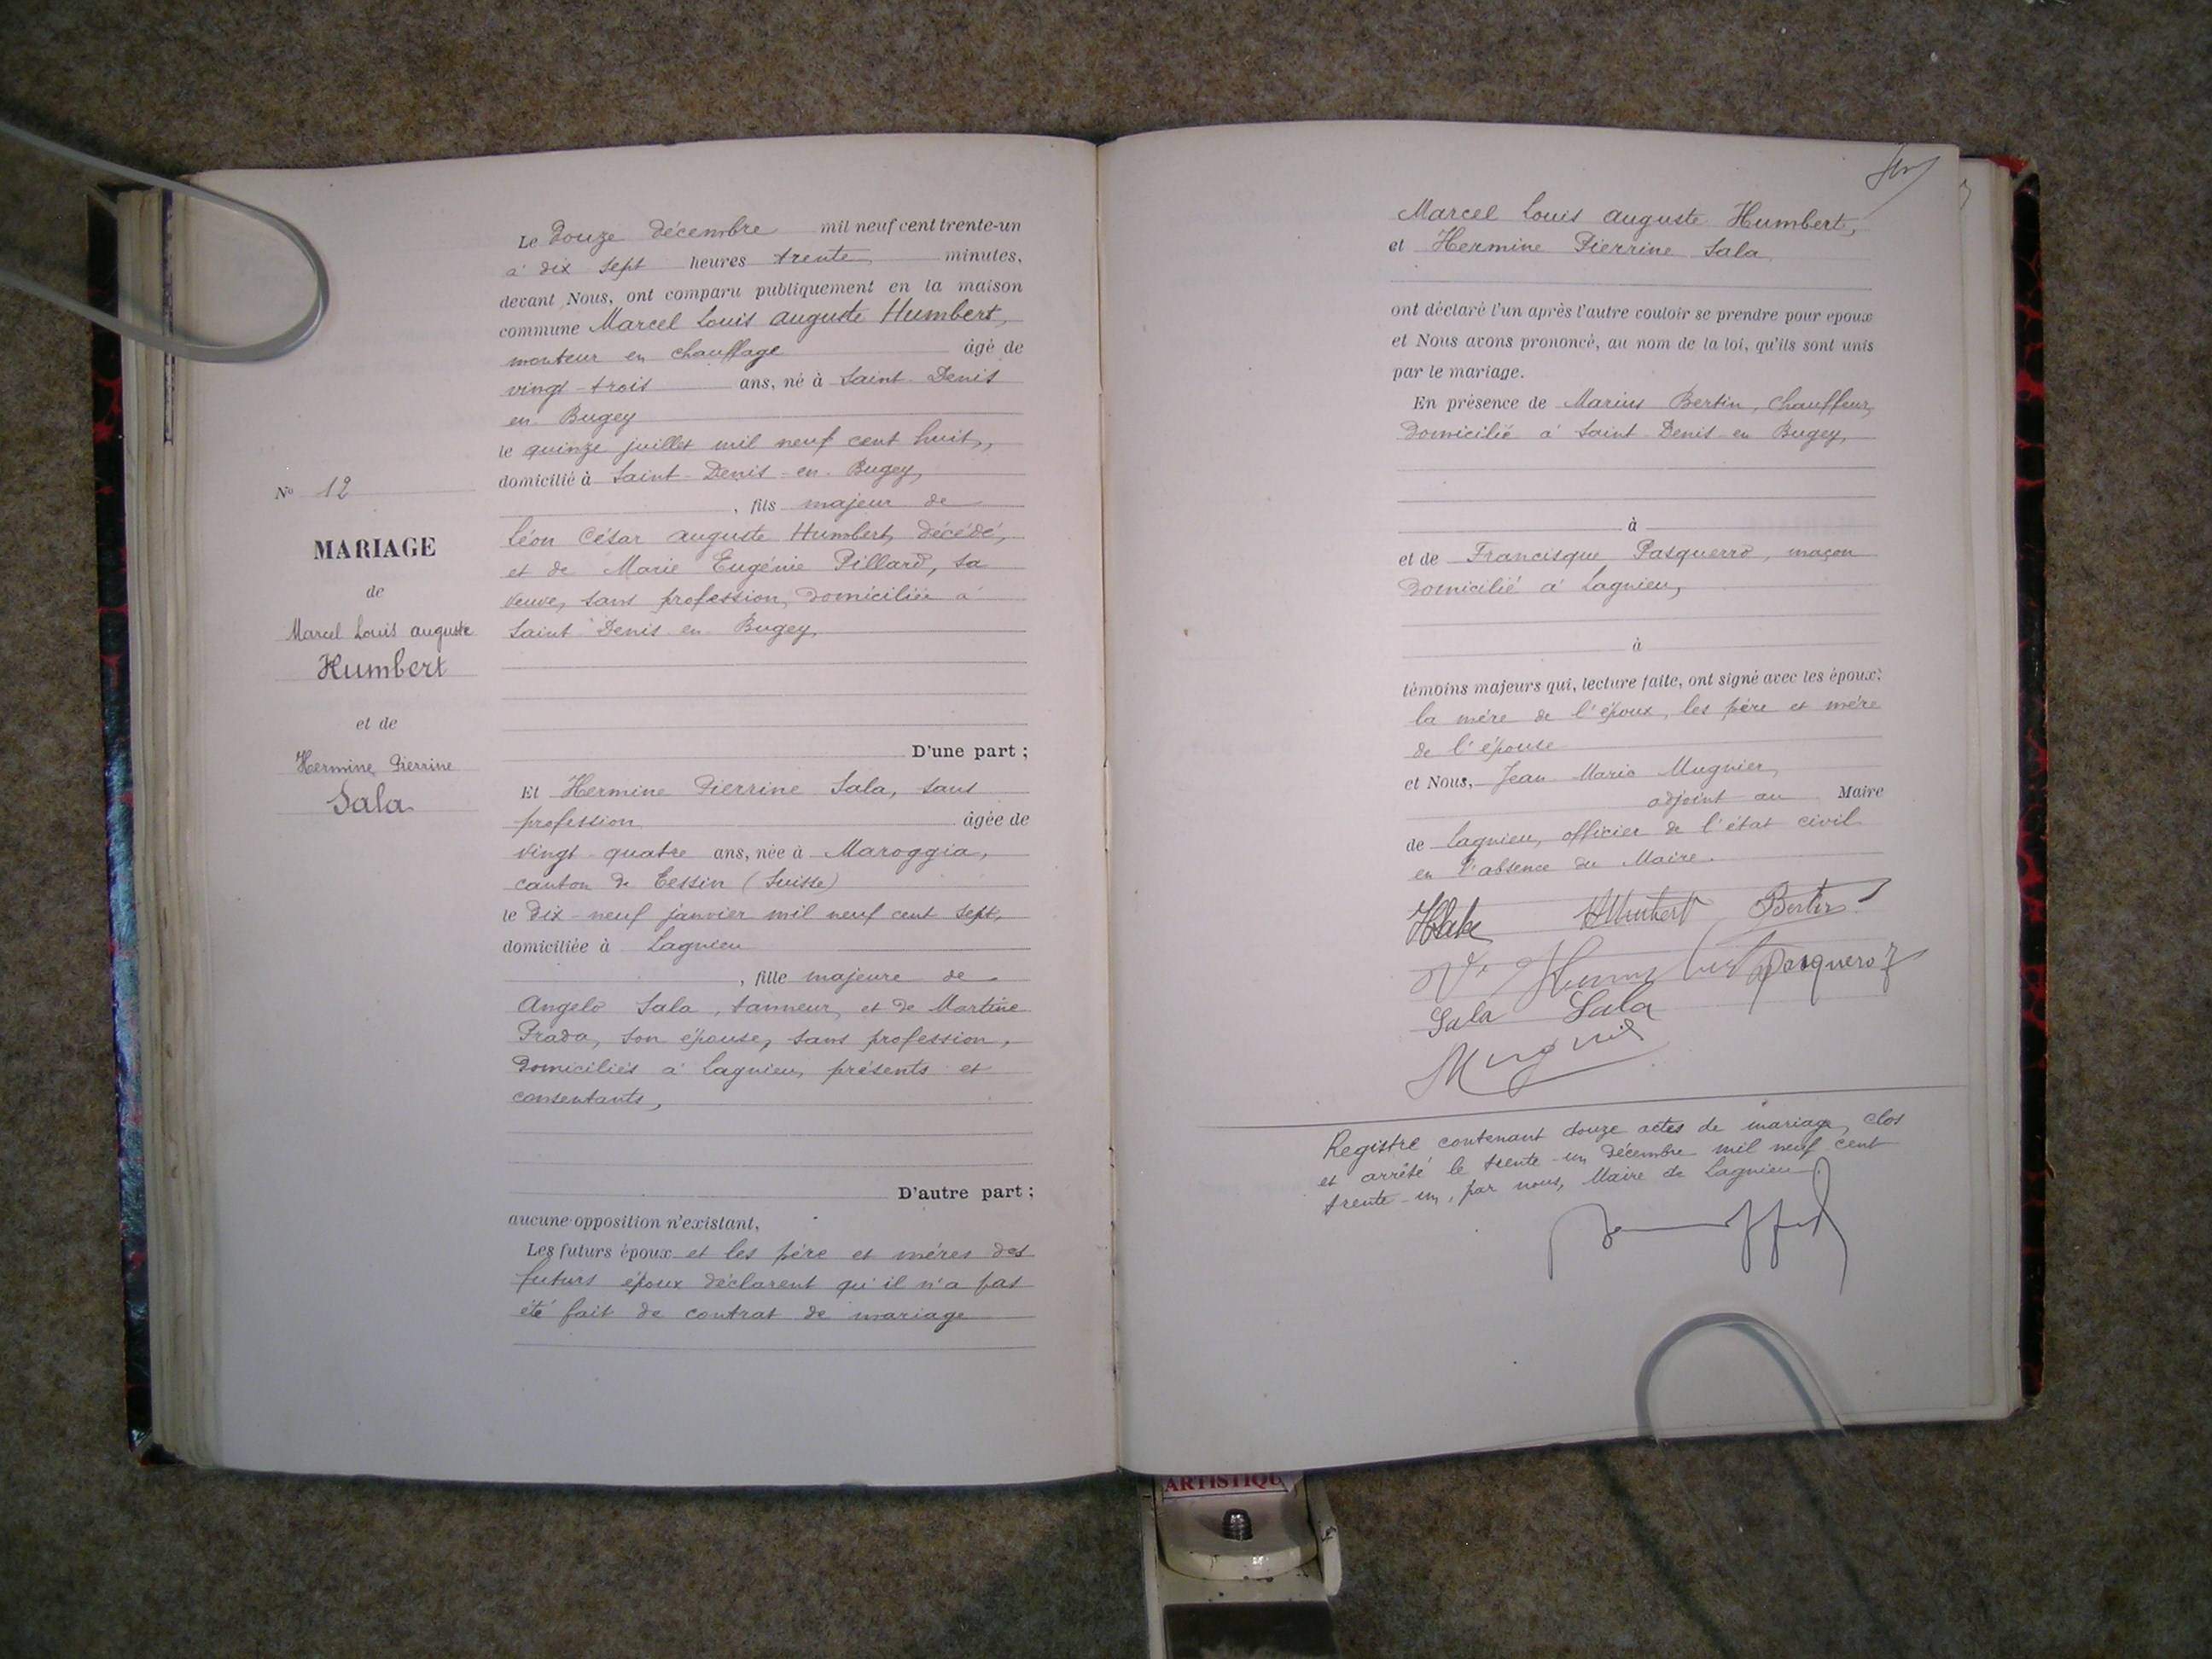 N° 12
MARIAGE
de
Marcel Louis auguste
Humbert
et de
Hermine Pierrine
Sala
Le Douze décembre mil neuf cent trente-un
à dix sept heures trente minutes,
devant Nous, ont comparu publiquement en la maison
commune Marcel Louis auguste Humbert,
monteur en chauffage âgé de
vingt-trois ans, né à Saint Denis
en Bugey
le quinze juillet mil neuf cent huit,
domicilié à Saint-Denis-en-Bugey,
, fils majeur de
Léon César auguste Humbert, décédé,
et de Marie Eugénie Pillard, sa
veuve, sans profession, domiciliée à
Saint Denis en Bugey,
D'une part ;
Et Hermine Pierrine Sala, sans
profession âgée de
vingt-quatre ans, née à Maroggia,
canton de Tessin (Suisse)
le dix-neuf janvier mil neuf cent sept,
domiciliée à Lagnieu
, fille majeure de
Angelo Sala, tanneur, et de Martine
Prada, son épouse, sans profession,
Domiciliés à Lagnieu, présents et
consentants,
D'autre part ;
aucune opposition n'existant,
Les futurs époux et les père et mères des
futurs époux déclarent qu'il n'a pas
été fait de contrat de mariage
Marcel Louis auguste Humbert,
et Hermine Pierrine Sala,
ont déclaré l'un après l'autre vouloir se prendre pour époux
et Nous avons prononcé, au nom de la loi, qu'ils sont unis
par le mariage.
En présence de Marius Bertin, chauffeur,
Domicilié à Saint Denis en Bugey,
à
et de Francisque Pasquerro, maçon
Domicilié à Lagnieu,
à
témoins majeurs qui, lecture faite, ont signé avec les époux,
la mère de l'époux, les père et mère
de l'épouse
et Nous, Jean Marie Mugnier,
adjoint au Maire
de Lagnieu, officier de l'état civil
en l'absence du Maire.
HSala Humbert Bertin
Ve Humbert Pasquero
Sala Sala
Mugnier
Registre contenant douze actes de mariage, clos
et arrêté le trente-un décembre mil neuf cent
trente-un, par nous, Maire de Lagnieu
ARTISTIQU